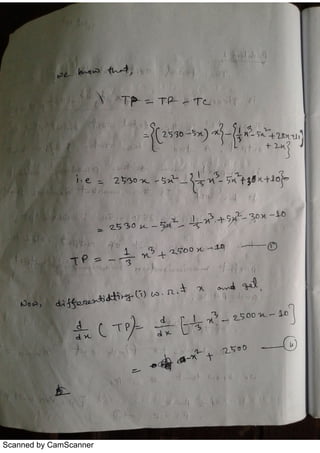 we know that,
TP = TR - TC
= {(2530-5x) x} - {1/3 x³ - 5x² + 28x + 10 + 2x}
i.e = 2530x - 5x² - {1/3 x³ - 5x² + 30x + 10}
= 2530x - 5x² - 1/3 x³ + 5x² - 30x - 10
TP = - 1/3 x³ + 2500x - 10 — (i)
Now, differentiating (i) w.r.t x and get,
d/dx (TP) = d/dx [-1/3 x³ - 2500x - 10]
= x² + 2500 — (ii)
Scanned by CamScanner